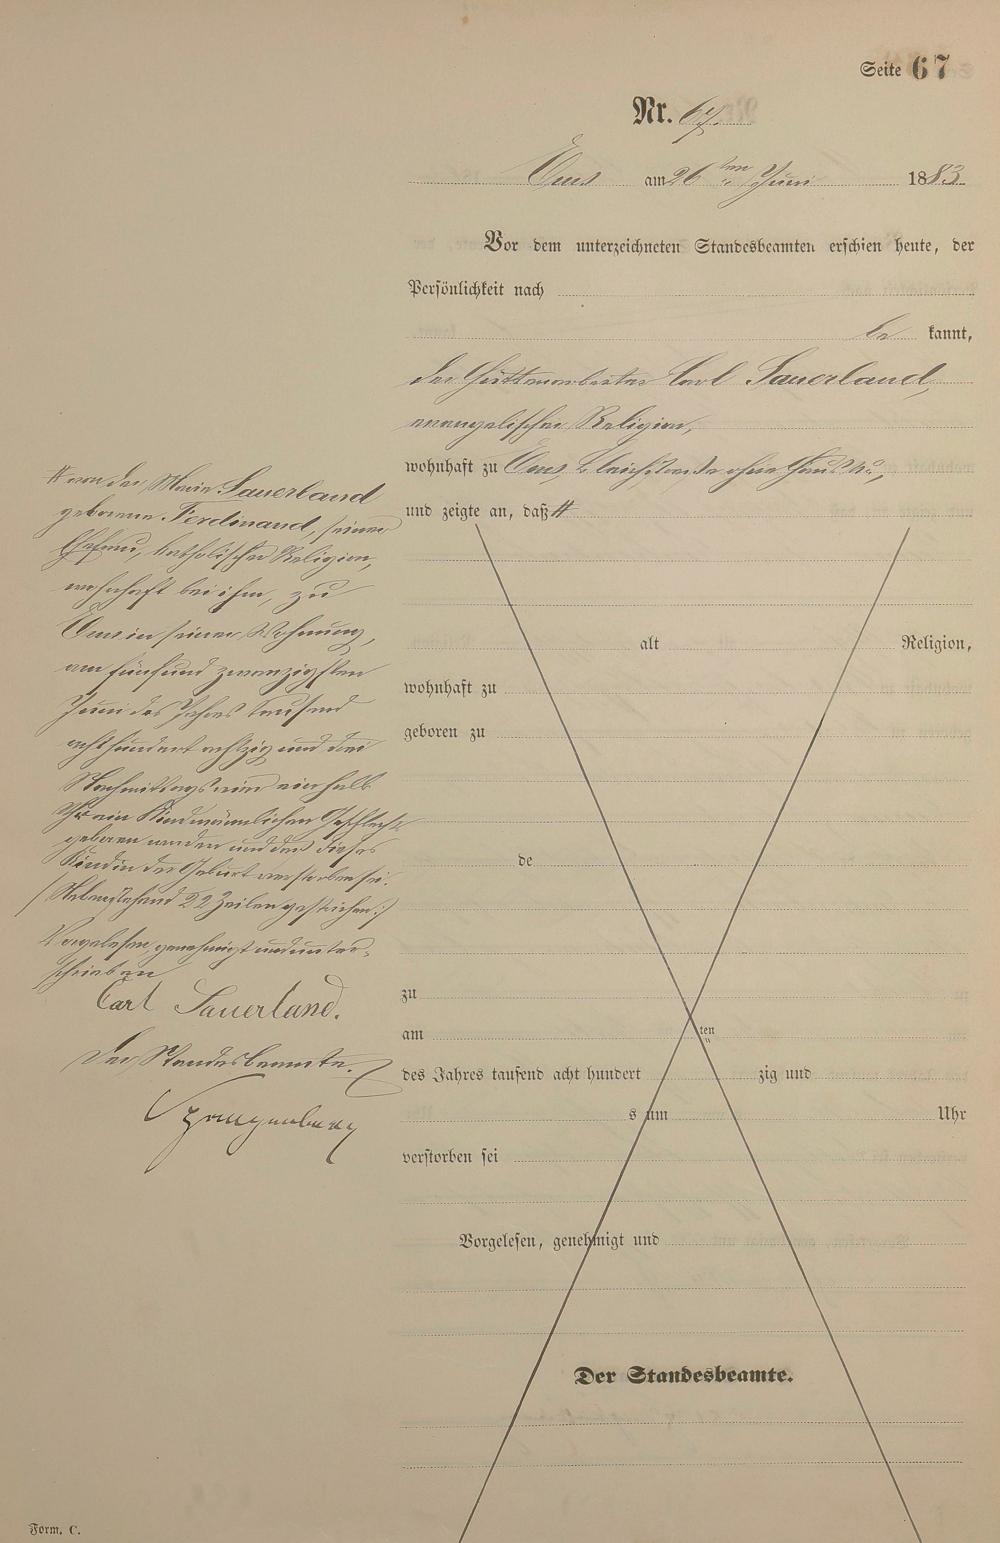 Seite 67
Nr. 67.
Ems am 26 ten Juni 1883.
Vor dem unterzeichneten Standesbeamten erschien heute, der
Persönlichkeit nach
be kannt,
der Hüttenarbeiter Carl Sauerland,
evangelischer Religion,
wohnhaft zu Ems, Bleichstraße ohne Haus No,
und zeigte an, daß #
# von der Marie Sauerland
geborene Ferdinand, seiner
Ehefrau, katholischer Religion,
wohnhaft bei ihm, zu
Ems in seiner Wohnung,
am fünf und zwanzigsten
Juni des Jahres tausend
acht hundert achtzig und drei
Nachmittags um vier halb
Uhr ein Kind männlichen Geschlechts
geboren worden und daß dieses
Kind in der Geburt verstorben sei.
/: Nebenstehend 22 Zeilen gestrichen :/
Vorgelesen, genehmigt und unter-
schrieben
Carl Sauerland.
Der Standesbeamte.
Spangenberg
alt Religion,
wohnhaft zu
geboren zu
de
zu
am ten
des Jahres tausend acht hundert zig und
s um Uhr
verstorben sei
Vorgelesen, genehmigt und
Der Standesbeamte.
Form. C.